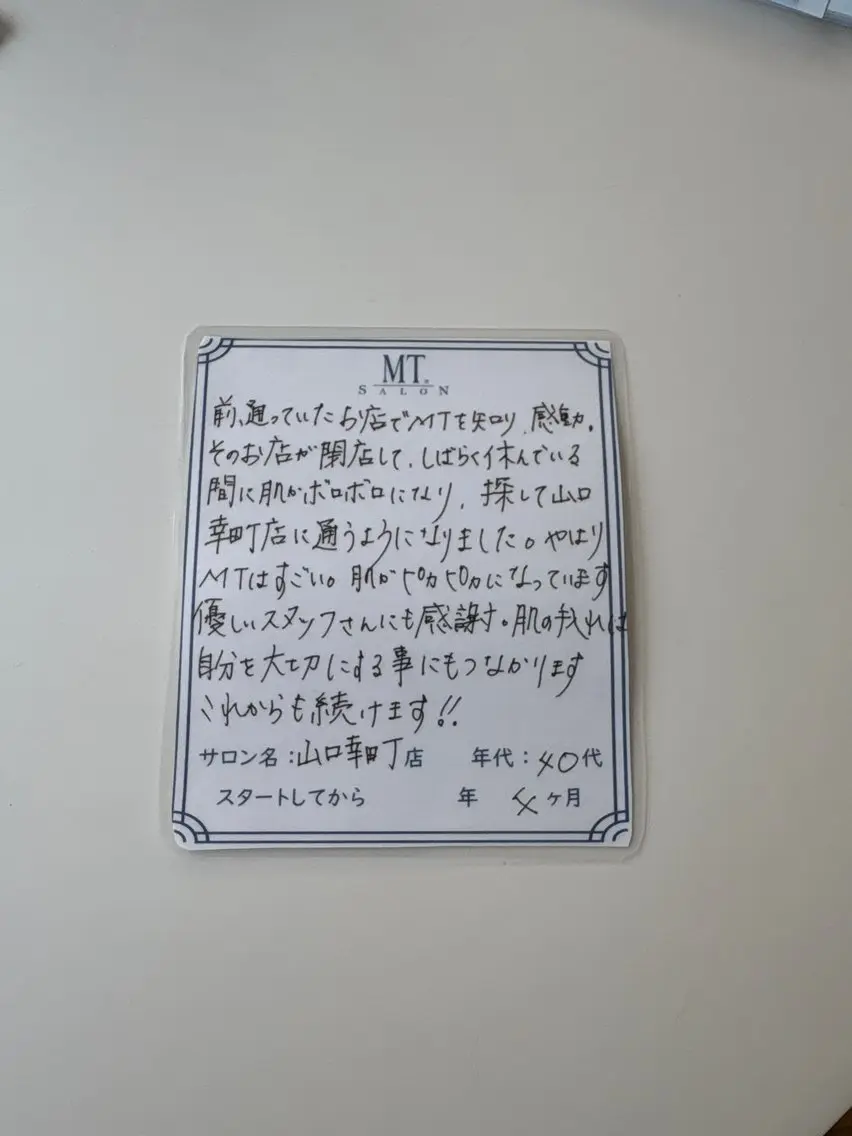 MT
SALON
前、通っていたお店でMTを知り、感動。
そのお店が閉店して、しばらく休んでいる
間に肌がボロボロになり、探して山口
幸町店に通うようになりました。やはり
MTはすごい。肌がピカピカになっています
優しいスタッフさんにも感謝。肌の手入れは
自分を大切にする事にもつながります
これからも続けます!!
サロン名:山口幸町店 年代:40代
スタートしてから 年 4ヶ月